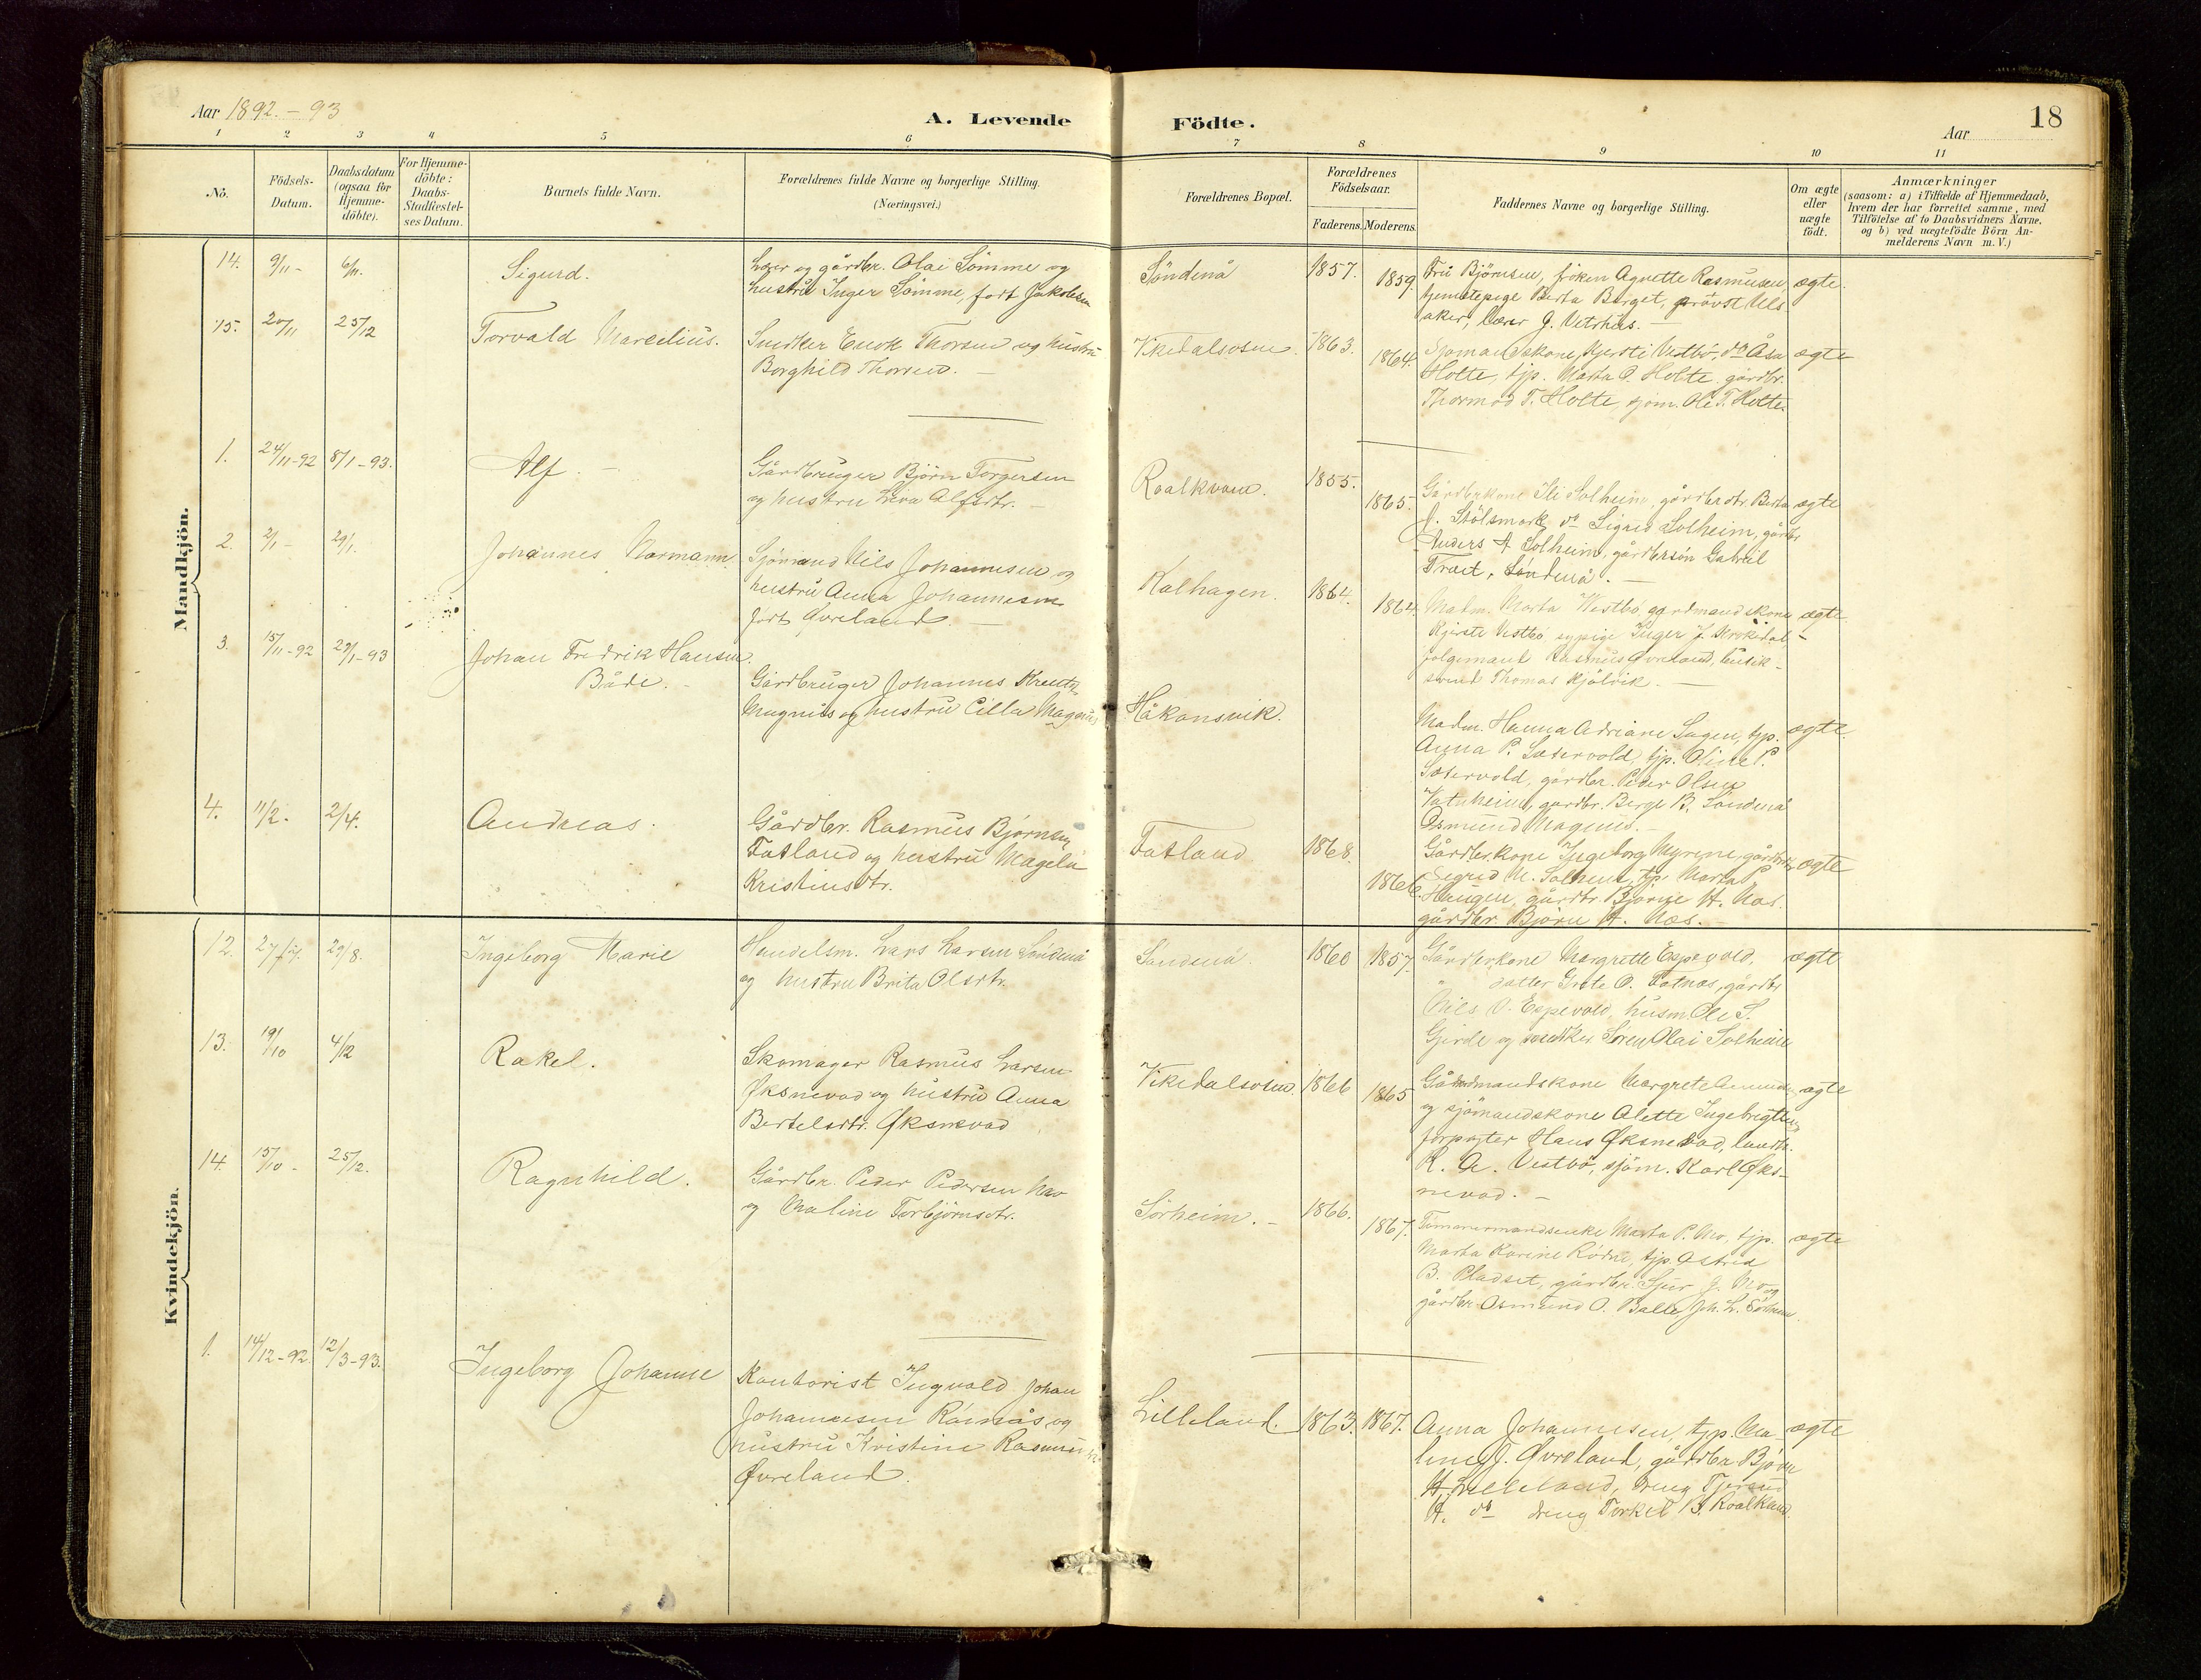 Aar 1892 - 93
A. Levende
Födte.
Aar
18
1
2
3
4
5
6
7
8
9
10
11
No.
Födsels-
Datum.
Daabsdatum
(ogsaa for
Hjemme-
döbte).
For Hjemme-
döbte:
Daabs-
Stadfæstel-
ses Datum.
Barnets fulde Navn.
Forældrenes fulde Navne og borgerlige Stilling.
(Næringsvei.)
Forældrenes Bopæl.
Forældrenes
Födselsaar.
Faderens.
Moderens.
Faddernes Navne og borgerlige Stilling.
Om ægte
eller
uægte
födt.
Anmærkninger
(saasom: a) i Tilfælde af Hjemmedaab,
hvem der har forrettet samme, med
Tilföielse af to Daabsvidners Navne,
og b) ved uægtefödte Börn An-
melderens Navn m. V.)
Mandkjön.
14. 9/11 - 6/11. Sigurd.
Lærer og gårdbr. Olai Sömme og
hustru Inger Sömme, født Jakobsen
Söndenå 1857. 1859.
Fru Björnsen, fröken Agnette Rasmusen,
tjenestepige Berta Berget, provst Uls-
aker, lærer G. Vetrhus. -
ægte.
15. 20/11 25/12 Torvald Marcelius.
Snedker Enok Thorsen og hustru
Borghild Thorsen. -
Vikedalsosen. 1863. 1864.
Sjömandskone Kjersti Vestbö, do Åsa
Holte, tjp. Marta O. Holte, gårdbr.
Thormod T. Holte, sjöm. Ole T. Holte.
ægte
1. 24/11-92 8/1-93. Alf. -
Gårdbruger Björn Torgersen
og hustru Liva Alfsdtr. -
Roalkvam. 1855. 1865.
Gårdbrkone Sli Solheim, gårdbrdtr. Berta
J. Stölsmark, do Sigrid Solheim, gårdbr.
Anders A. Solheim, gårdbrsön Gabriel
Træt, Söndenå. -
ægte
2. 2/1 - 29/1. Johannes Normann.
Sjömand Nils Johannesen og
hustru Anna Johannesen
født Øvreland. -
Kalhagen. 1864. 1864.
Madm. Marta Vestbö
Kjerste Vestbö sypige Inger J.
Rasmus Øvreland, butik-
svend Thomas Kjölvik. -
ægte.
3. 15/11-92 29/1-93 Johan Fredrik Hansen
Både. -
Gårdbruger Johannes
Magnus og hustru Cilla Magnus
Håkonsvik.
Madm. Hanna Adriane Sagen, tjp.
Anna P. Sætervold, tjp. Oline P.
Sætervold, gårdbr. Peder Olsen
Vatnheim, gårdbr. Berge B. Söndenå
Osmund Magnus. -
ægte.
4. 11/2. 2/4. Andreas.
Gårdbr. Rasmus Björnsen
Fatland og hustru Magela
Kristensdtr.
Fatland 1868. 1866.
Gårdbr.kone Ingeborg Myrene, gårdbrdtr.
Sigrid N. Solheim, tjp. Marta P.
Haugen, gårdbr. Björne H. Næs.
gårdbr. Björn H. Næs. -
ægte
Kvindekjön.
12. 27/7. 29/8. Ingeborg Marie
Handelsm. Lars Larsen Söndenå
og hustru Brita Olsdtr.
Söndenå. 1860 1857.
Gårdbrkone Margrette Espevold,
" datter Grete O. Fatnæs, gårdbr
Nils O. Espevold, husm. Ole S.
Gjerde og snedker Sören Olai Solheim
ægte
13. 19/10 4/12 Rakel.
Skomager Rasmus Larsen
Øksnevad og hustru Anna
Bertelsdtr. Øksnevad
Vikedalsosen. 1866 1865
Margrete
og sjömandskone Alette Ingebregtsen,
forpagter Hans Øksnevad, landh.
K. A. Vestbö, sjöm. Karl Øks-
nevad. -
ægte
14. 15/10 - 25/12. Ragnhild.
Gårdbr. Peder Pedersen Mo
og Maline Torbjörnsdtr.
Sörheim. - 1866. 1867.
Tömmermandsenke Marta P. Mo, tjp.
Marta Karine Rödne, tjp. Astrid
B. Pladset, gårdbr. Sjur J. Mo og
gårdbr. Osmund O. Balle, Joh. L. Sörheim.
ægte
1. 14/12-92. 12/3-93. Ingeborg Johanne
Kontorist Ingvald Johan
Johannesen Ramsås og
hustru Kristine Rasmusdtr.
Øvreland.
Lilleland. 1863. 1867.
Anna Johannesen, tjp. Ma-
line J. Øvreland, gårdbr. Björn
H. Lilleland, dreng
H. do dreng Torkel B. Roalkvam.
ægte